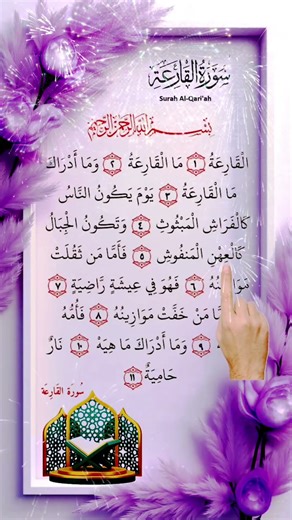 سورة القارعة
Surah Al-Qari'ah
بسم الله الرحمن الرحيم
الْقَارِعَةُ ١ مَا الْقَارِعَةُ ٢ وَمَا أَدْرَاكَ
مَا الْقَارِعَةُ ٣ يَوْمَ يَكُونُ النَّاسُ
كَالْفَرَاشِ الْمَبْثُوثِ ٤ وَتَكُونُ الْجِبَالُ
كَالْعِهْنِ الْمَنفُوشِ ٥ فَأَمَّا مَن ثَقُلَتْ
٦ فَهُوَ فِي عِيشَةٍ رَّاضِيَةٍ ٧
مَنْ خَفَّتْ مَوَازِينُهُ ٨ فَأُمُّهُ
٩ وَمَا أَدْرَاكَ مَا هِيَهْ ١٠ نَارٌ
حَامِيَةٌ ١١
سُورَة القَارِعَة